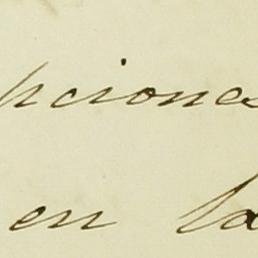 pciones
en la